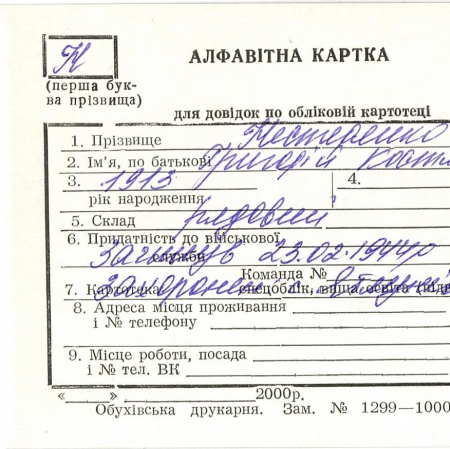 Н
АЛФАВІТНА КАРТКА
(перша бук-
ва прізвища)
для довідок по обліковій картотеці
1. Прізвище Нестеренко
2. Ім'я, по батькові Григорій
3. 1913 4.
рік народження
5. Склад рядовий
6. Придатність до військової
служби
загинув 23.02.1944р
Команда №
7. Картотека спецоблік, вища освіта
8. Адреса місця проживання
і № телефону
9. Місце роботи, посада
і № тел. ВК
«____» 2000р.
Обухівська друкарня. Зам. № 1299—1000